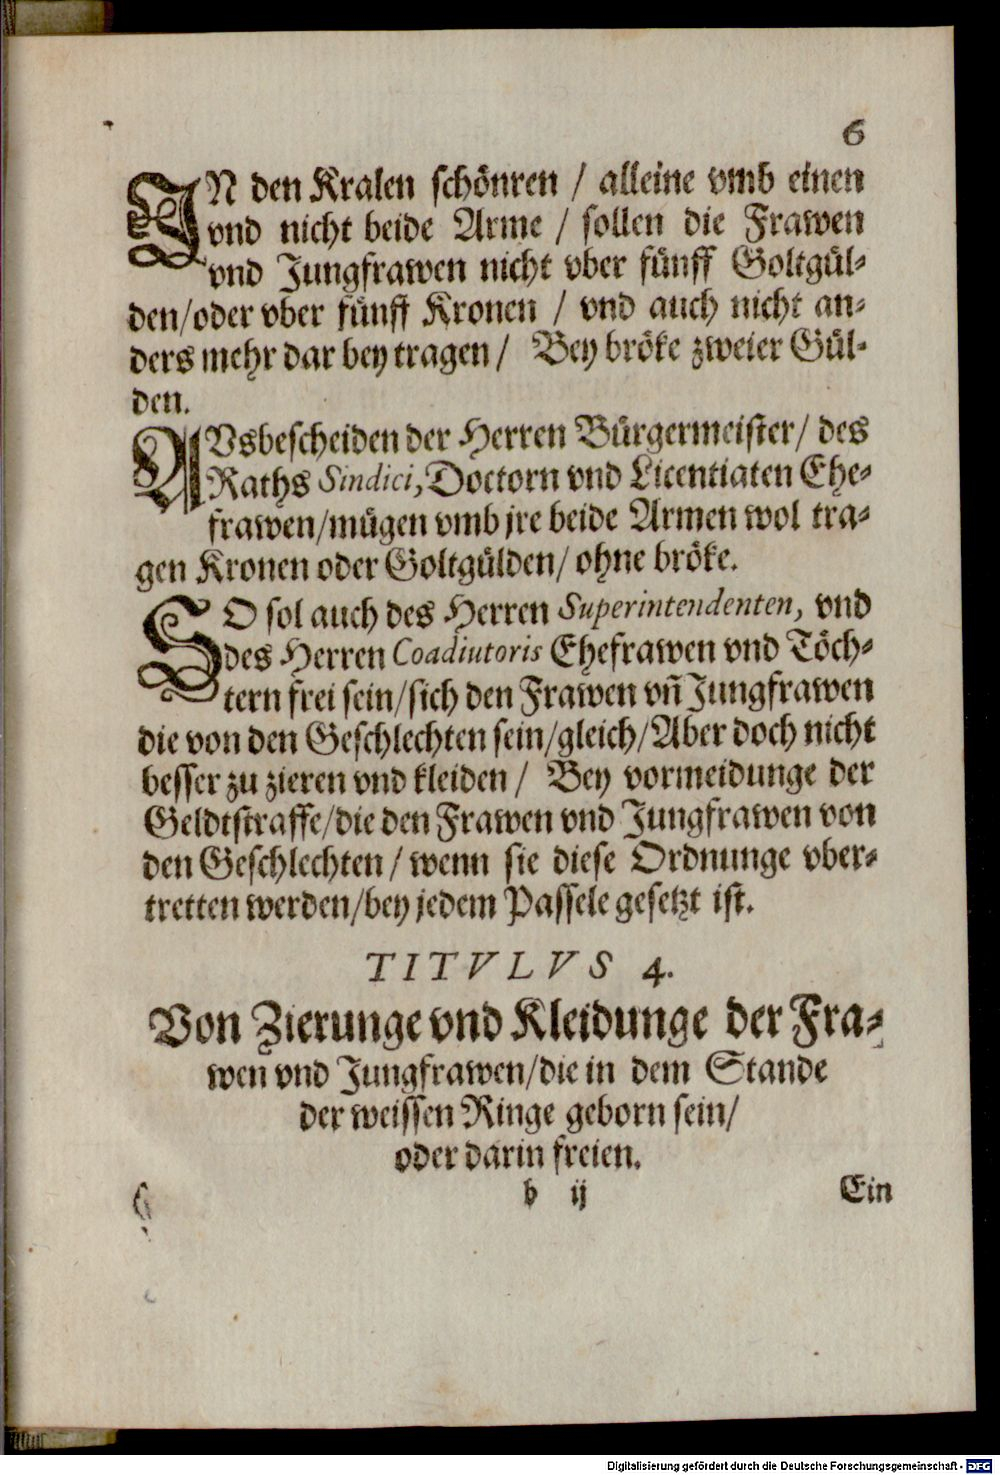 6
IN den Kralen schönren / alleine vmb einen
vnd nicht beide Arme / sollen die Frawen
vnd Jungfrawen nicht vber fünff Goltgül-
den/oder vber fünff Kronen / vnd auch nicht an-
ders mehr dar bey tragen / Bey bröke zweier Gül-
den.
AVsbescheiden der Herren Bürgermeister / des
Raths Sindici, Doctorn vnd Licentiaten Ehe-
frawen/mügen vmb jre beide Armen wol tra-
gen Kronen oder Goltgülden / ohne bröke.
SO sol auch des Herren Superintendenten, vnd
des Herren Coadiutoris Ehefrawen vnd Töch-
tern frei sein/sich den Frawen vñ Jungfrawen
die von den Geschlechten sein/gleich/Aber doch nicht
besser zu zieren vnd kleiden / Bey vormeidunge der
Geldtstraffe/die den Frawen vnd Jungfrawen von
den Geschlechten / wenn sie diese Ordnunge vber-
tretten werden/bey jedem Passele gesetzt ist.
TITVLVS 4.
Von Zierunge vnd Kleidunge der Fra-
wen vnd Jungfrawen/die in dem Stande
der weissen Ringe geborn sein/
oder darin freien.
b ij Ein
Digitalisierung gefördert durch die Deutsche Forschungsgemeinschaft - DFG